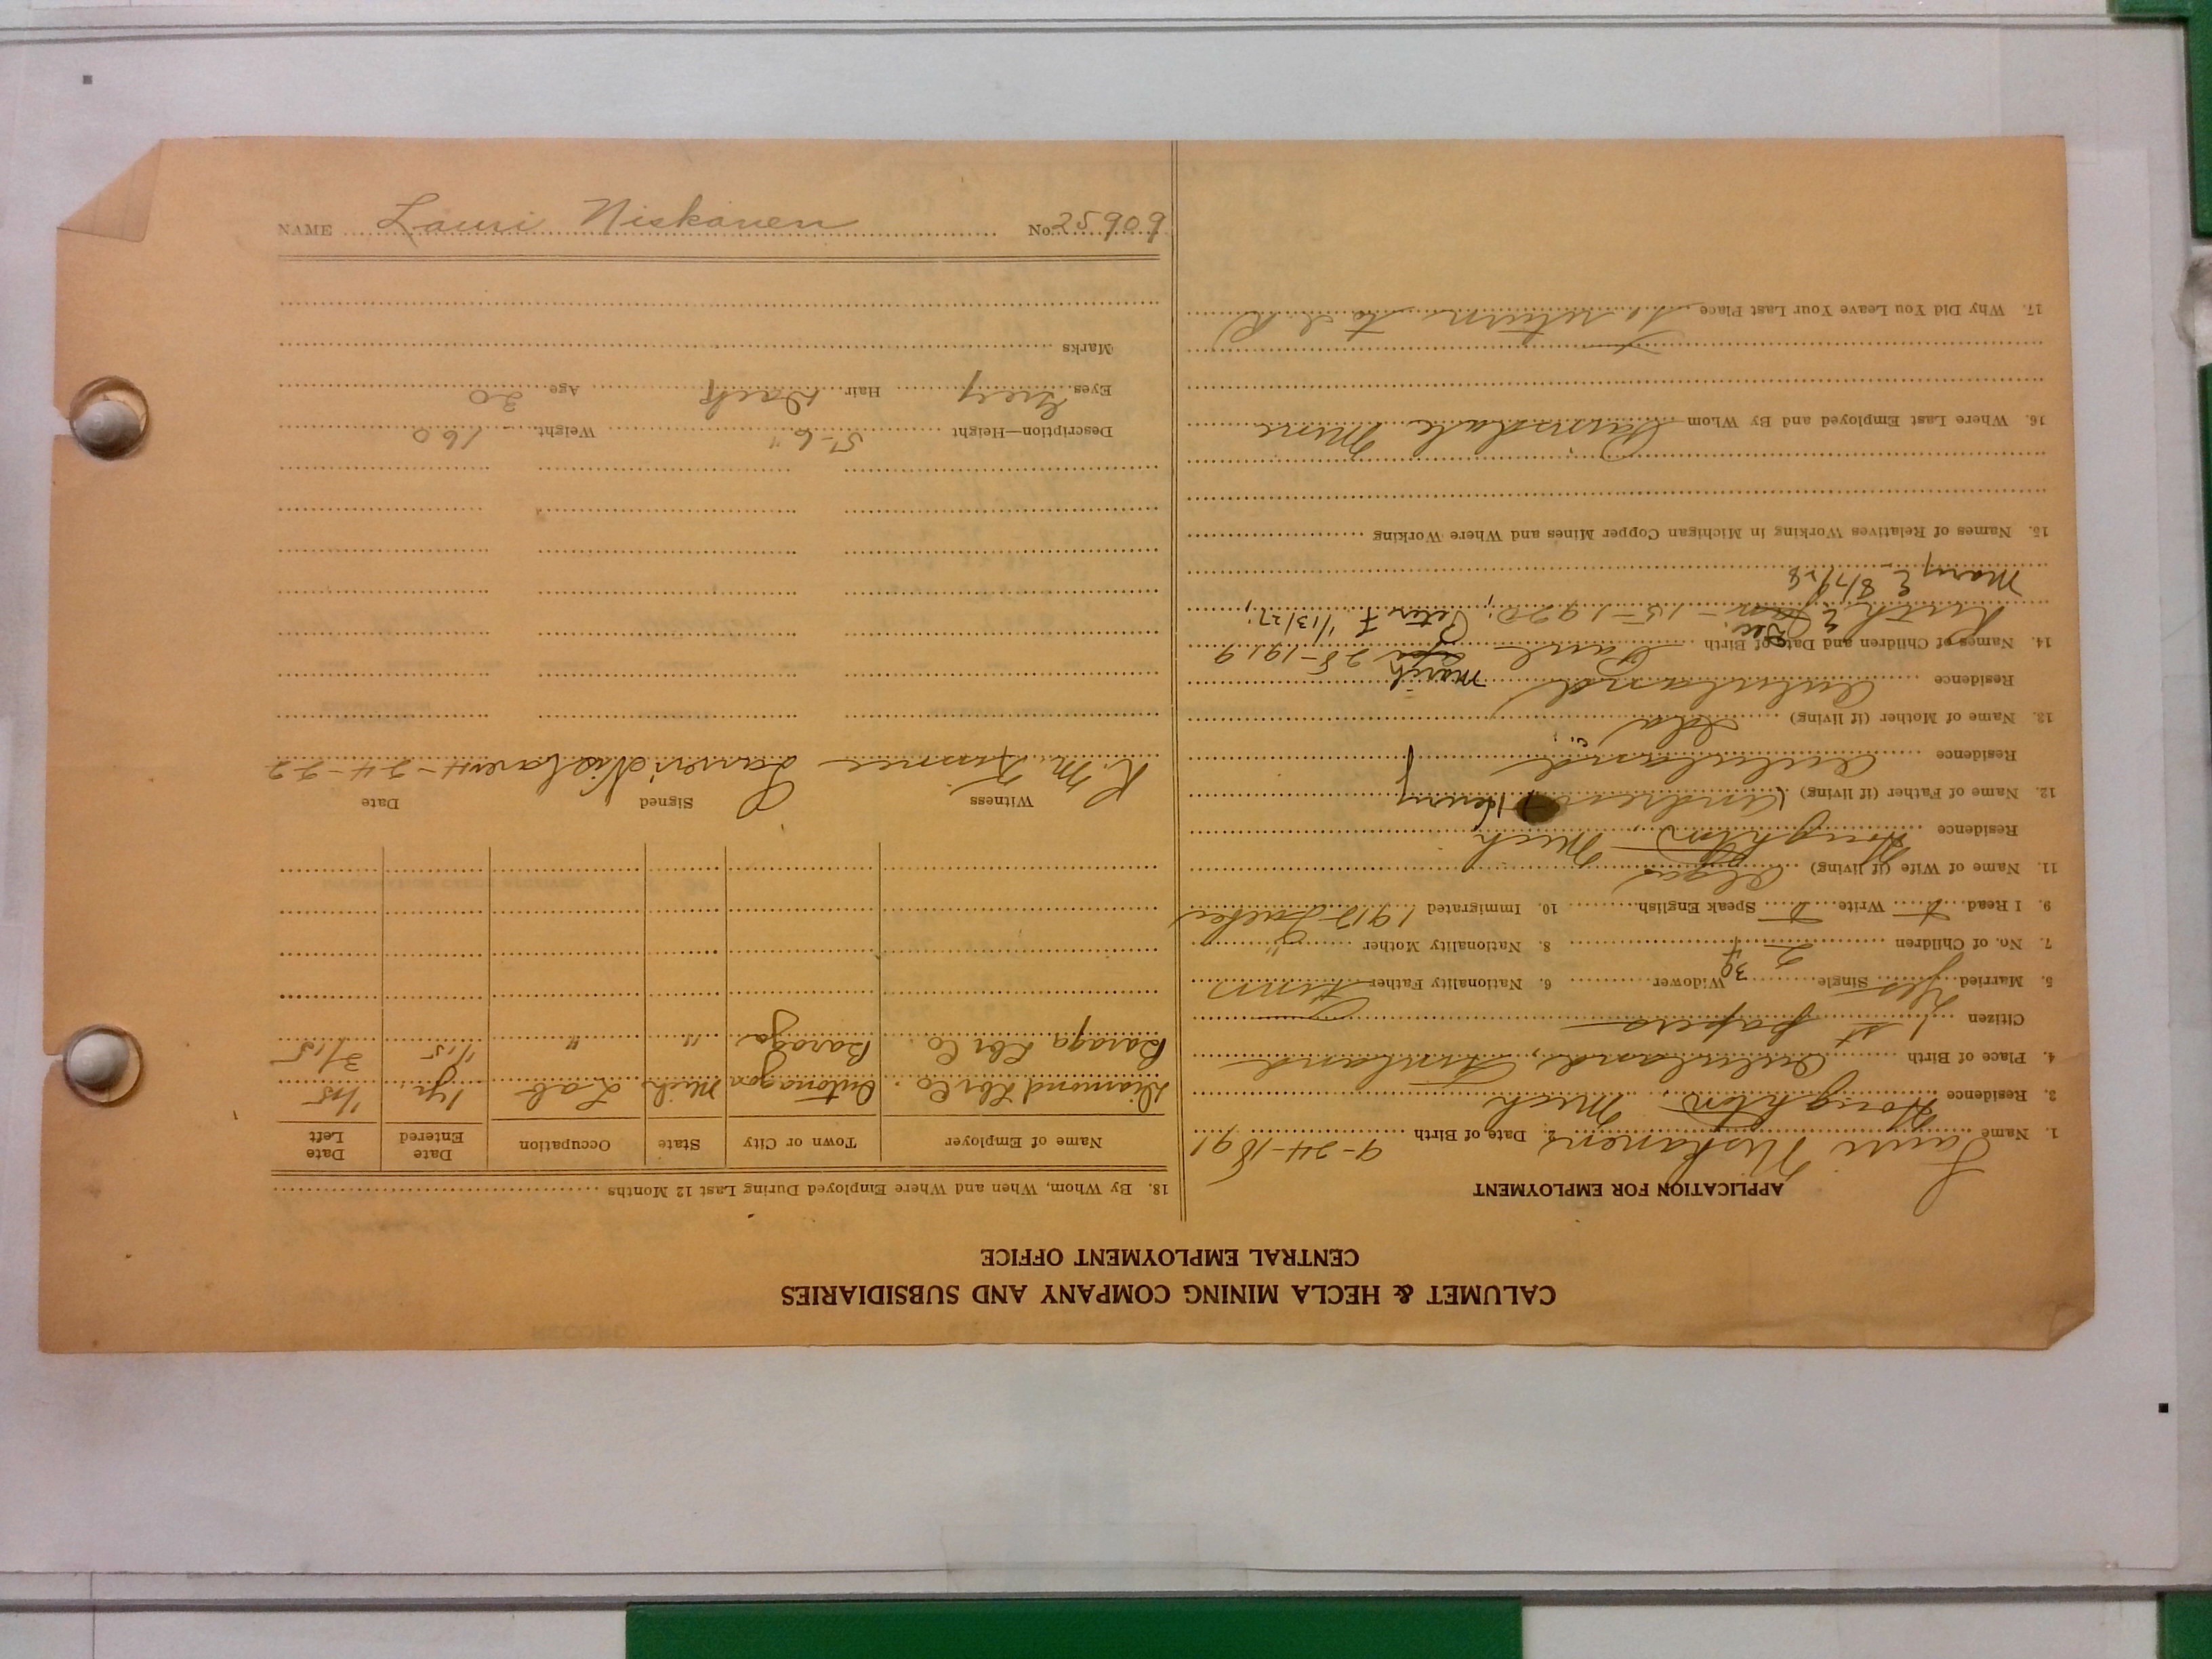 CALUMET & HECLA MINING COMPANY AND SUBSIDIARIES
CENTRAL EMPLOYMENT OFFICE
APPLICATION FOR EMPLOYMENT
1. Name Lauri Niskanen 2. Date of Birth 9-24-1891
3. Residence Houghton, Mich
4. Place of Birth Finland
Citizen 1st papers
5. Married Yes Single Widower 6. Nationality Father Finn
7. No. of Children 2 3 4 8. Nationality Mother "
9. I Read Write Speak English 10. Immigrated 191
11. Name of Wife (if living) Olga
Residence Houghton Mich
12. Name of Father (if living) Andrew Henry
Residence
13. Name of Mother (if living) Ida
Residence
14. Names of Children and Date of Birth Paul Apr March 28-1919
Ruth E Jan Dec. 15-1920; Peter F 1/13/27;
Mary E 8/7/28
15. Names of Relatives Working in Michigan Copper Mines and Where Working
16. Where Last Employed and By Whom Painsdale Mine
17. Why Did You Leave Your Last Place To return to
18. By Whom, When and Where Employed During Last 12 Months
Name of Employer Town or City State Occupation Date Entered Date Left
Diamond Lbr Co. Ontonagon Mich Lab 1 yr. 1/15
Baraga Lbr Co. Baraga " " 1/15 3/15
Witness Signed Date
R. M. Lauri Niskanen 4-24-22
Description—Height 5-6" Weight 160
Eyes Grey Hair Dark Age 30
Marks
NAME Lauri Niskanen No. 25909